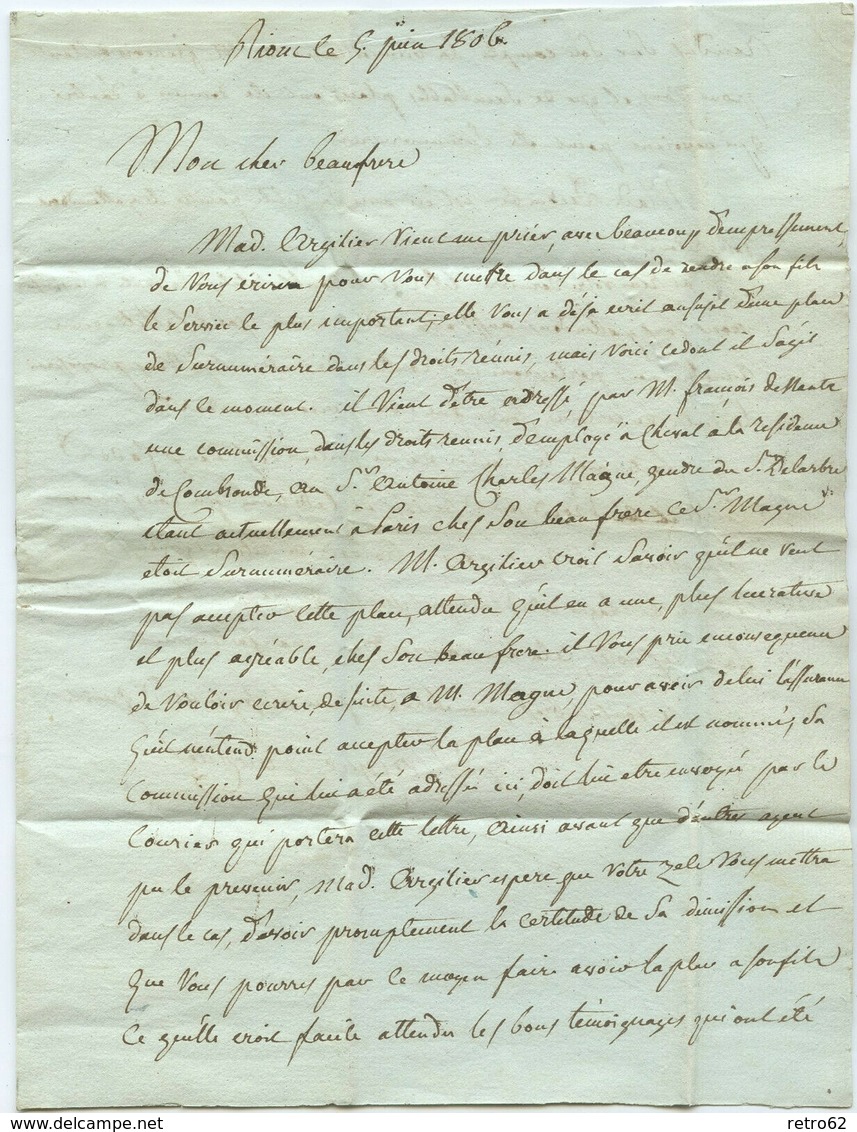 Riom le 5. juin 1806.
Mon cher beaufrere
Mad. Argilier vient me prier, avec beaucoup d'empressement,
de vous écrire pour vous mettre dans le cas de rendre a son fils
le service le plus important; elle vous a déja ecrit au sujet d'une place
de surnuméraire dans les droits réunis, mais voici cedont il s'agit
dans le moment. il vient d'etre adressé, par M. francois de Nante
une commission, dans les droits reunis, d'employé a cheval a la residence
de Combronde, au S.r Antoine Charles Magne, gendre du S.r Delarbre
etant actuellement a Paris chez son beaufrere ce S.r Magne
etoit surnuméraire. M. Argilier croit savoir qu'il ne veut
pas accepter cette place, attendu qu'il en a une, plus lucrative
et plus agréable, chez son beaufrere. il vous prie enconsequence
de vouloir ecrire, desuite, a M. Magne, pour avoir delui l'assurance
qu'il n'entend point accepter la place a laquelle il est nommé, sa
Commission qui lui a été adressée ici, doit lui etre envoyée par le
Courier qui portera cette lettre, Ainsi avant que d'autres agent
pu le prevenir, Mad. Argilier espere que votre zele vous mettra
dans le cas, d'avoir promptement la certitude de sa dimission et
que vous pourres par ce moyen faire avoir la place a son fils
Ce qu'elle croit facile attendu les bons témoignages qui ont été
www.delcampe.net
retro62